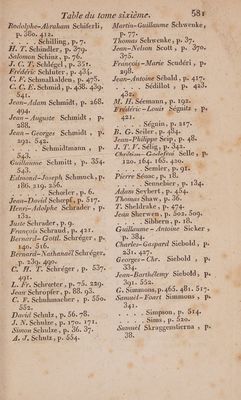 Table du tome sixième. 581
Rodolphe-Abraham Schiferli,
p. 380. 412.
. . . . Schilling, p. 7.
H. T. Schindler, p. 379.
Salomon Schinz, p. 76.
J. C. T. Schlégel, p. 351.
Fréderic Schluter, p. 435.
C. F. Schmalkalden, p. 475.
C. C. E. Schmid, p. 438. 439.
541.
Jean-Adam Schmidt, p. 268.
494.
Jean-Auguste Schmidt, p.
288.
Jean-Georges Schmidt, p.
291. 542.
. . . . Schmidtmann, p.
543.
Guillaume Schmitt, p. 354.
543.
Edmond-Joseph Schmuck, p.
186. 219. 256.
. . . . Schœler, p. 6.
Jean-David Schœpf, p. 517.
Henri-Adolphe Schrader, p.
132.
Juste Schrader, p. 9.
François Schraud, p. 421.
Bernard-Gottl. Schréger, p.
140. 516.
Bernard-Nathanaël Schréger,
p. 239. 490.
C. H. T. Schréger, p. 537.
491.
L. Fr. Schrœter, p. 75. 229.
Jean Schropfer, p. 88. 93.
C. F. Schuhmacher, p. 550.
552.
David Schulz, p. 56. 78.
J. N. Schulze, p. 170. 171.
Simon Schulze, p. 36. 37.
A. J. Schutz, p. 554.
Martin-Guillaume Schwenke,
p. 77.
Thomas Schwenke, p. 37.
Jean-Nelson Scott, p. 370.
375.
François-Marie Scudéri, p.
298.
Jean-Antoine Sebald, p. 417.
. . . . Sédillot, p. 423.
432.
M. H. Séemann, p. 192.
Fréderic-Louis Ségnitz, p.
421.
. . . . Séguin, p. 217.
B. G. Seiler, p. 484.
Jean-Philippe Seip, p. 48.
J. T. V. Sélig, p. 342.
p.
120. 164. 165. 420.
. . . . Semler, p. 91.
Pierre Sénac, p. 18.
. . . . Sennebier, p. 134.
Adam Seybert, p. 484.
Thomas Shaw, p. 36.
T. Sheldrake, p. 474.
Jean Sherwen, p. 502. 509.
. . . . Sibbern, p. 18.
Guillaume-Antoine Sicker,
p. 384.
Charles-Gaspard Siebold, p.
231. 427.
Georges-Chr. Siebold, p.
334.
Jean-Barthelemy Siebold, p.
391. 552.
G. Simmons, p. 465. 481. 517.
Samuel-Foart Simmons, p.
341.
. . . . Simpson, p. 514.
. . . . Sims, p. 520.
Samuel Skraggenstierna, p.
38.